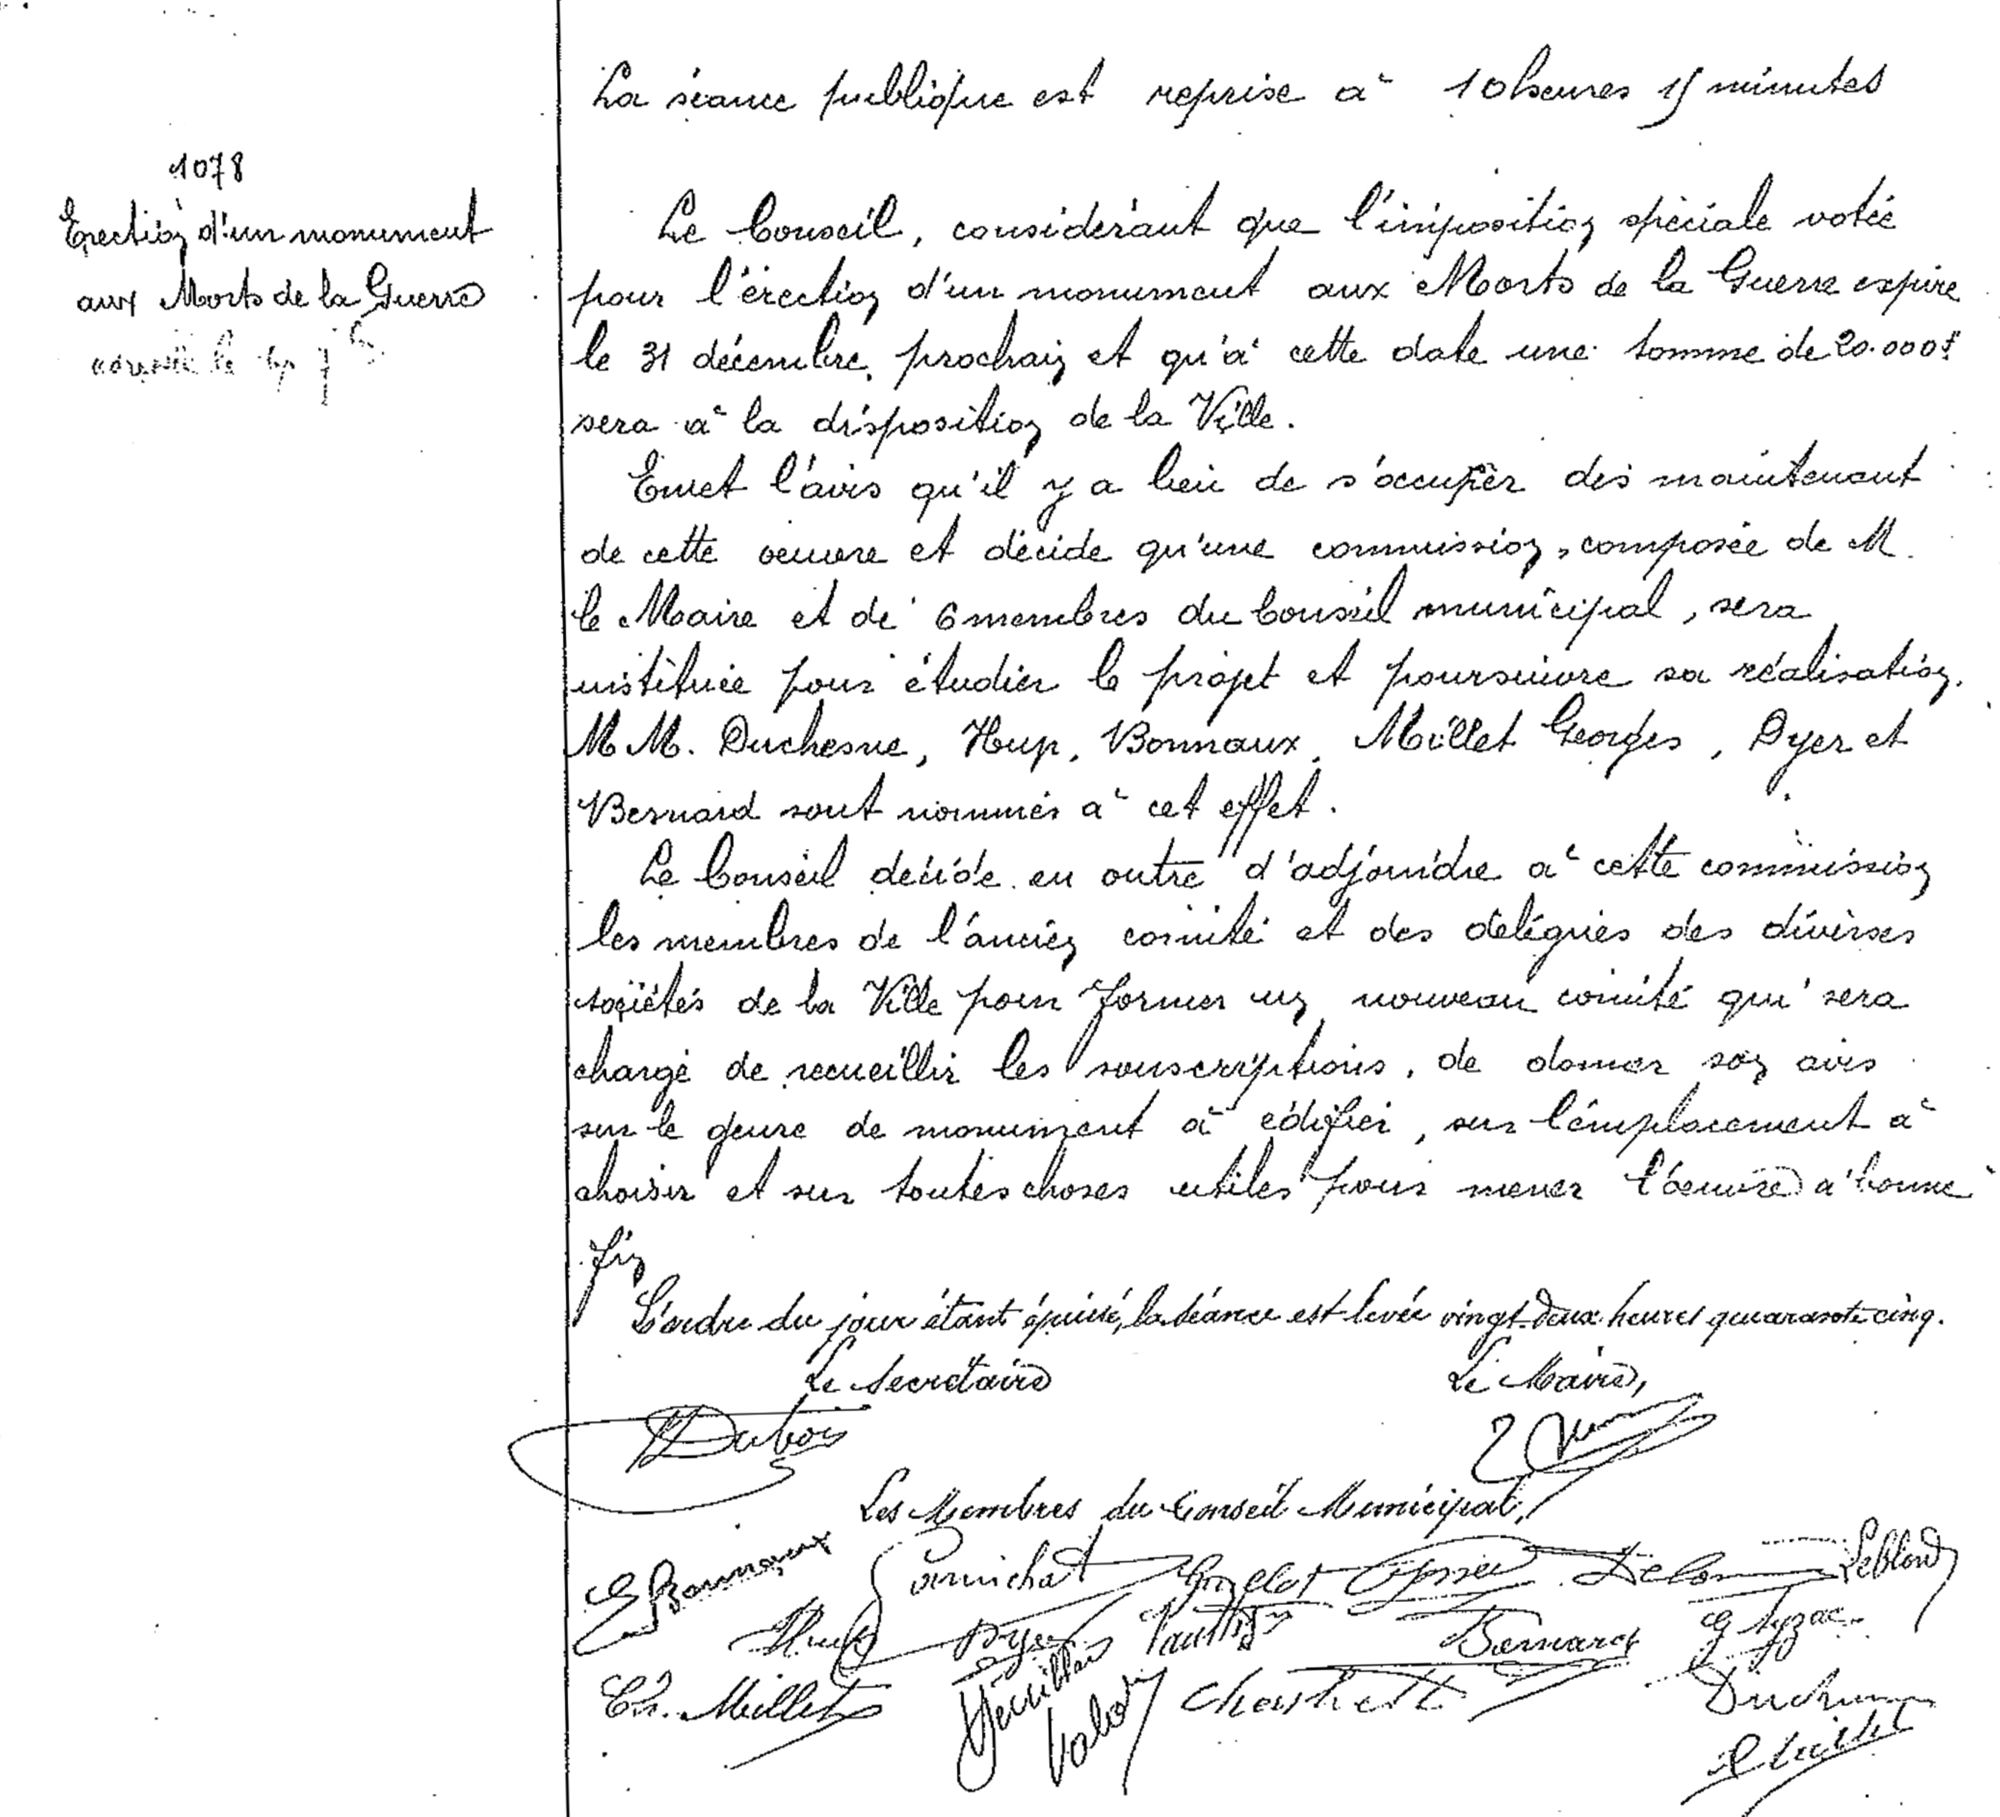 La séance publique est reprise à 10 heures 15 minutes
1078
Erection d'un monument
aux Morts de la Guerre
Le Conseil, considérant que l'imposition spéciale votée
pour l'érection d'un monument aux Morts de la Guerre expire
le 31 décembre prochain et qu'à cette date une somme de 20.000f
sera à la disposition de la Ville.
Emet l'avis qu'il y a lieu de s'occuper dès maintenant
de cette oeuvre et décide qu'une commission, composée de M.
le Maire et de 6 membres du Conseil municipal, sera
instituée pour étudier le projet et poursuivre sa réalisation.
MM. Duchesne, Hup, Bonnaux, Millet Georges, Dyer et
Bernard sont nommés à cet effet.
Le Conseil décide en outre d'adjoindre à cette commission
les membres de l'ancien comité et des délégués des diverses
sociétés de la Ville pour former un nouveau comité qui sera
chargé de recueillir les souscriptions, de donner son avis
sur le genre de monument à édifier, sur l'emplacement à
choisir et sur toutes choses utiles pour mener l'oeuvre à bonne
fin
L'ordre du jour étant épuisé, la séance est levée vingt-deux heures quarante cinq.
Le Secrétaire
Le Maire,
Dubois
Les Membres du Conseil Municipal,
Bonnaux
Leblond
Hup Dyer Bernard
Millet